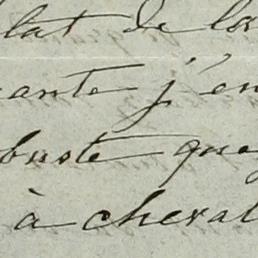 lat de la
ante j'en
buste que
à cheval